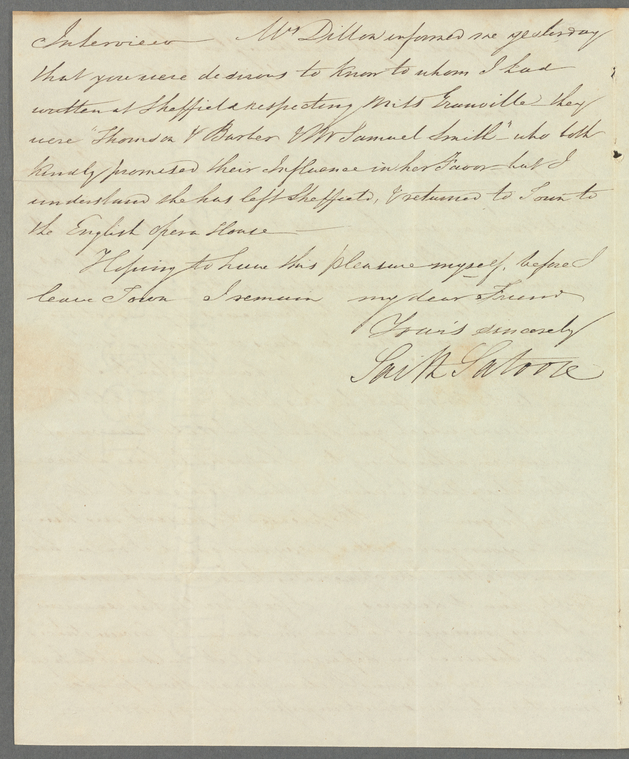 Interview Mrs Dillon informed me yesterday
that you were desirous to know to whom I had
written at Sheffield respecting Miss Granville they
were "Thomson & Barber & Mr Samuel Smith" who both
kindly promised their Influence in her Favor but I
understand she has left Sheffield, & returned to Town to
the English Opera House
Hoping to have this pleasure myself, before I
leave Town I remain my dear Friend
Yours sincerely